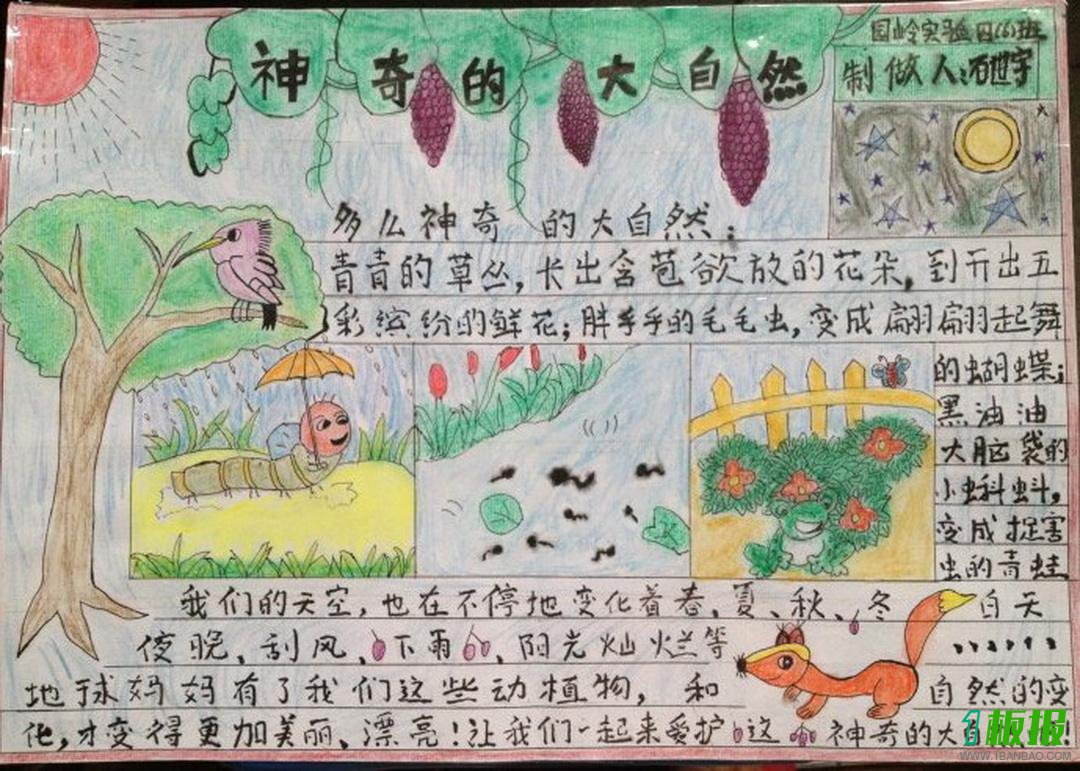 园岭实验四(6)班
神奇的大自然
制做人:石世宇
多么神奇 的大自然;
青青的草丛,长出含苞欲放的花朵,到开出五
彩缤纷的鲜花;胖乎乎的毛毛虫,变成翩翩起舞
的蝴蝶;
黑油油
大脑袋的
小蝌蚪,
变成捉害
虫的青蛙
我们的天空,也在不停地变化着春、夏、秋、冬 白天
夜晚、刮风、下雨、阳光灿烂等 ......
地球妈妈有了我们这些动植物,和 自然的变
化,才变得更加美丽、漂亮!让我们一起来爱护这神奇的大自然!
板报
WWW.1BANBAO.COM